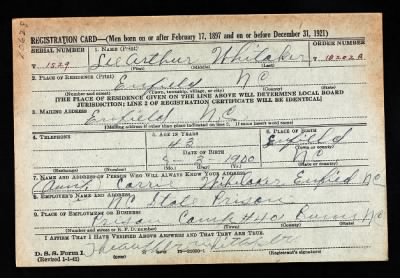 REGISTRATION CARD—(Men born on or after February 17, 1897 and on or before December 31, 1921)
SERIAL NUMBER
1. NAME (Print)
ORDER NUMBER
V 1529
Lee Arthur Whitaker
V 10202A
(First) (Middle) (Last)
2. PLACE OF RESIDENCE (Print)
Enfield N.C
(Number and street) (Town, township, village, or city) (County) (State)
[THE PLACE OF RESIDENCE GIVEN ON THE LINE ABOVE WILL DETERMINE LOCAL BOARD
JURISDICTION; LINE 2 OF REGISTRATION CERTIFICATE WILL BE IDENTICAL]
3. MAILING ADDRESS
Enfield N.C
[Mailing address if other than place indicated on line 2. If same insert word same]
4. TELEPHONE
5. AGE IN YEARS
6. PLACE OF BIRTH
42
Enfield
DATE OF BIRTH
(Town or county)
8 3 1900
N C
(Exchange) (Number)
(Mo.) (Day) (Yr.)
(State or country)
7. NAME AND ADDRESS OF PERSON WHO WILL ALWAYS KNOW YOUR ADDRESS
Carrie Whitaker Enfield N.C
8. EMPLOYER'S NAME AND ADDRESS
State Prison
9. PLACE OF EMPLOYMENT OR BUSINESS
Prison Camp N.C
(Number and street or R. F. D. number) (Town) (County) (State)
I AFFIRM THAT I HAVE VERIFIED ABOVE ANSWERS AND THAT THEY ARE TRUE.
D. S. S. Form 1
(Revised 1-1-42)
(Registrant's signature)